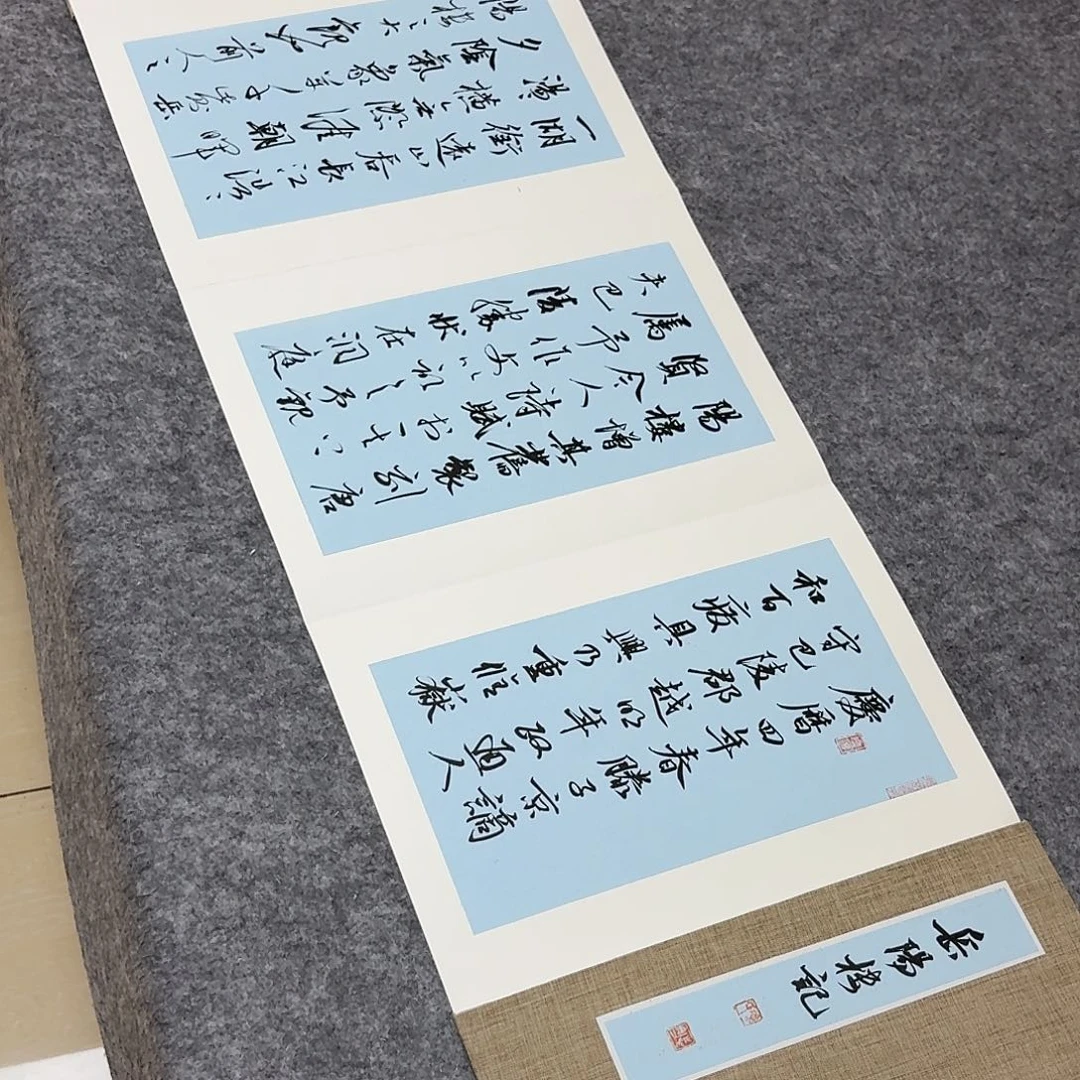 岳陽楼記
慶曆四年春滕子京謫
守巴陵郡越明年政通人
和百廢具興乃重修嶽
陽樓增其舊製刻唐
賢今人詩賦於其上
屬予作文以記之予觀
夫巴陵勝狀在洞庭
一湖銜遠山吞長江浩々
湯々橫無際涯朝暉
夕陰氣象萬千此則岳
陽樓之大觀也前人之